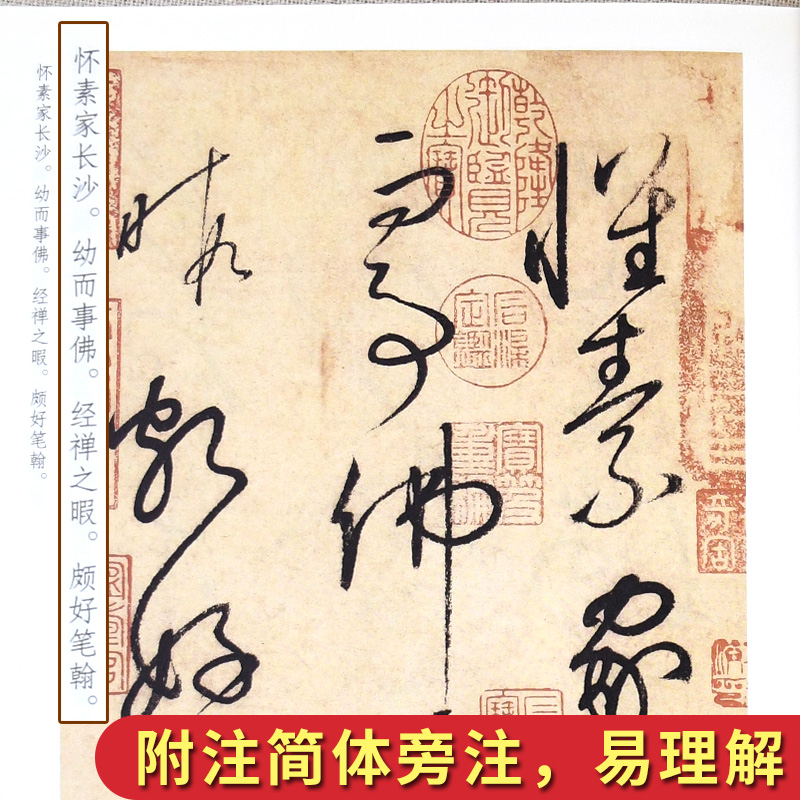 怀素家
而事佛
暇颇好
怀素家长沙。幼而事佛。经禅之暇。颇好笔翰。
怀素家长沙。幼而事佛。经禅之暇。颇好笔翰。
乾隆御览之宝
石渠定鉴
宝笈重编
附注简体旁注，易理解